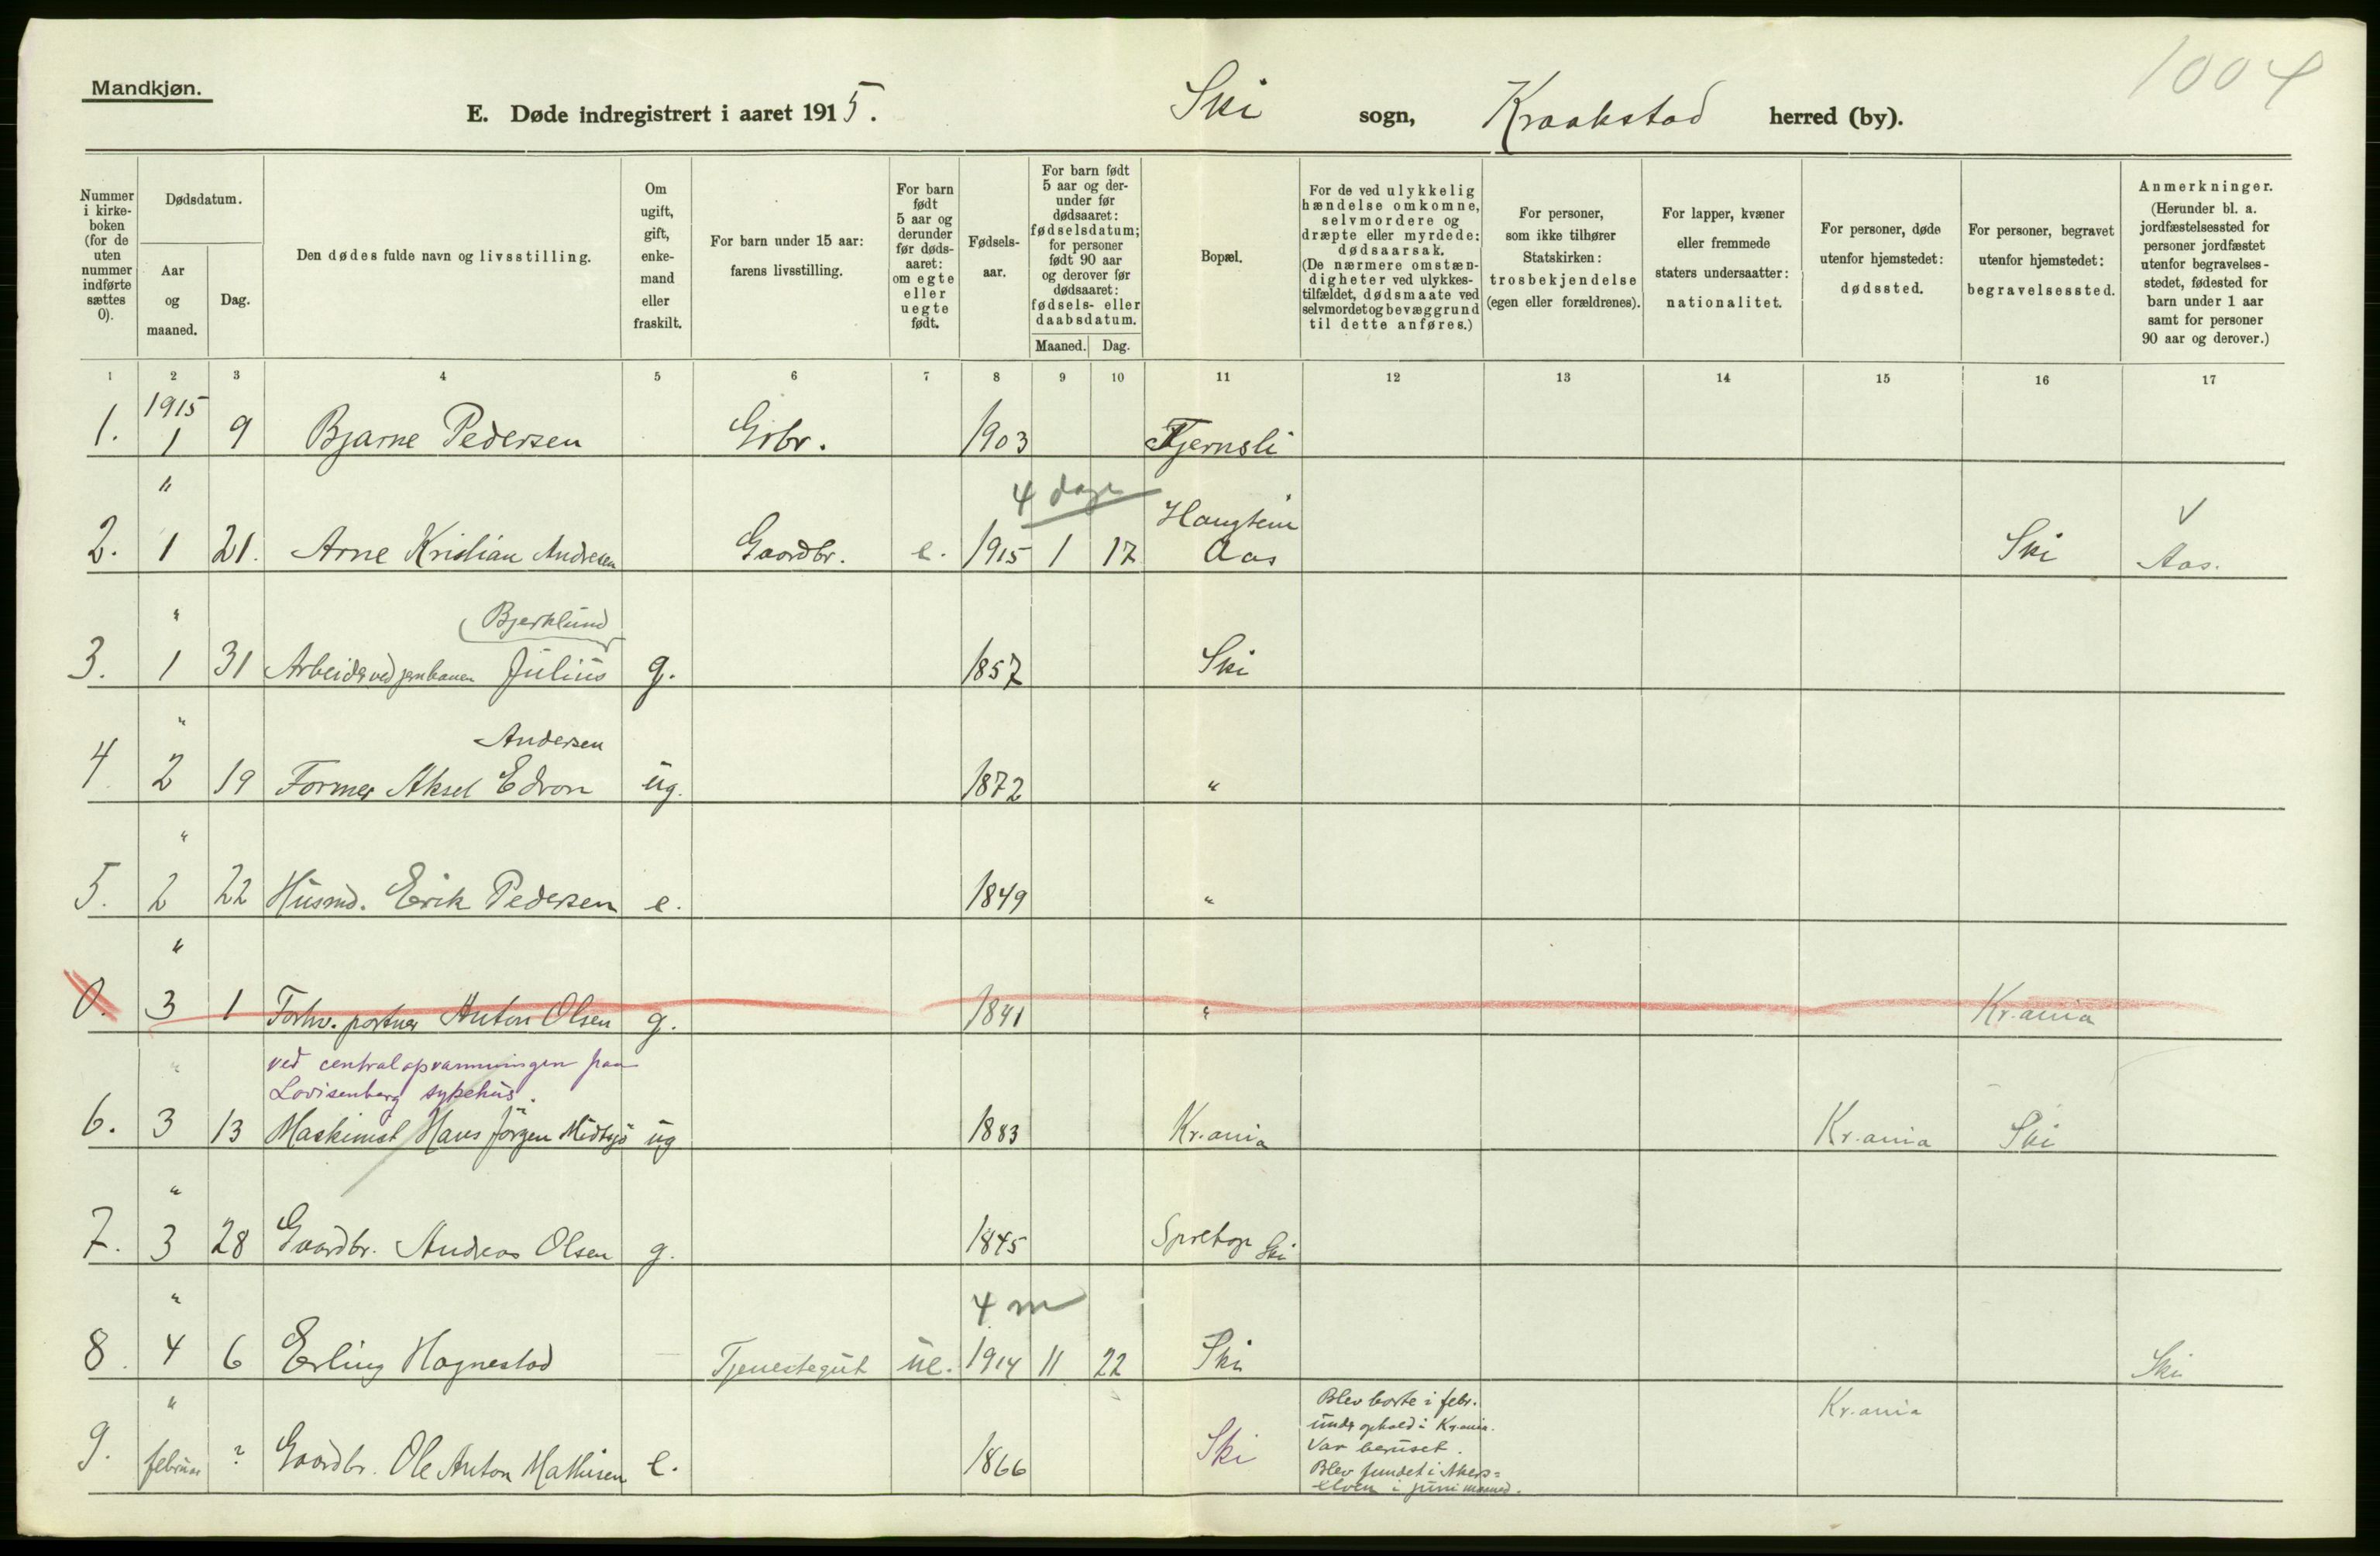 Mandkjøn.
1004
E. Døde indregistrert i aaret 1915. Ski sogn, Kraakstad herred (by).
Nummer i kirke- boken (for de uten nummer indførte sættes 0).
Dødsdatum.
Aar og maaned.
Dag.
Den dødes fulde navn og livsstilling.
Om ugift, gift, enke- mand eller fraskilt.
For barn under 15 aar: farens livsstilling.
For barn født 5 aar og derunder før døds- aaret: om egte eller uegte født.
Fødsels- aar.
For barn født 5 aar og der- under før dødsaaret: fødselsdatum; for personer født 90 aar og derover før dødsaaret: fødsels- eller daabsdatum.
Maaned. Dag.
Bopæl.
For de ved ulykkelig hændelse omkomne, selvmordere og dræpte eller myrdede: dødsaarsak. (De nærmere omstæn- digheter ved ulykkes- tilfældet, dødsmaate ved selvmordet og bevæggrund til dette anføres.)
For personer, som ikke tilhører Statskirken: trosbekjendelse (egen eller forældrenes).
For lapper, kvæner eller fremmede staters undersaatter: nationalitet.
For personer, døde utenfor hjemstedet: dødssted.
For personer, begravet utenfor hjemstedet: begravelsessted.
Anmerkninger. (Herunder bl. a. jordfæstelsessted for personer jordfæstet utenfor begravelses- stedet, fødested for barn under 1 aar samt for personer 90 aar og derover.)
1 2 3 4 5 6 7 8 9 10 11 12 13 14 15 16 17
1915
1. 1 9 Bjarne Pedersen Gbr. 1903 Tjernsli
" 4 dage Haugtein
2. 1 21. Arne Kristian Andresen Gaardbr. e. 1915 1 17 Aas Ski Aas.
" Bjerklund
3. 1 31 Arbeider ved jernbanen Julius g. 1857 Ski
" Andersen
4 2 19 Former Aksel Edvon ug. 1872 "
"
5. 2 22 Husmd. Erik Pedersen e. 1849 "
"
0. 3 1 Forhv. portner Anton Olsen g. 1841 " Kr.ania
" ved centralopvarmningen paa
Lovisenberg sykehus.
6. 3 13 Maskinist Hans Jörgen Midtsjö ug 1883 Kr.ania Kr.ania Ski
"
7. 3 28 Gaardbr. Andreas Olsen g. 1845 Ski
" 4 m
8. 4 6 Erling Hagnestad Tjenestegut ue. 1914 11 22 Ski Ski
" Blev borte i febr. Kr.ania
under ophold i Kr.ania.
Var beruset.
9. februar ? Gaardbr. Ole Anton Mathisen e. 1866 Ski Blev fundet i Akers=
elven i juni maaned.